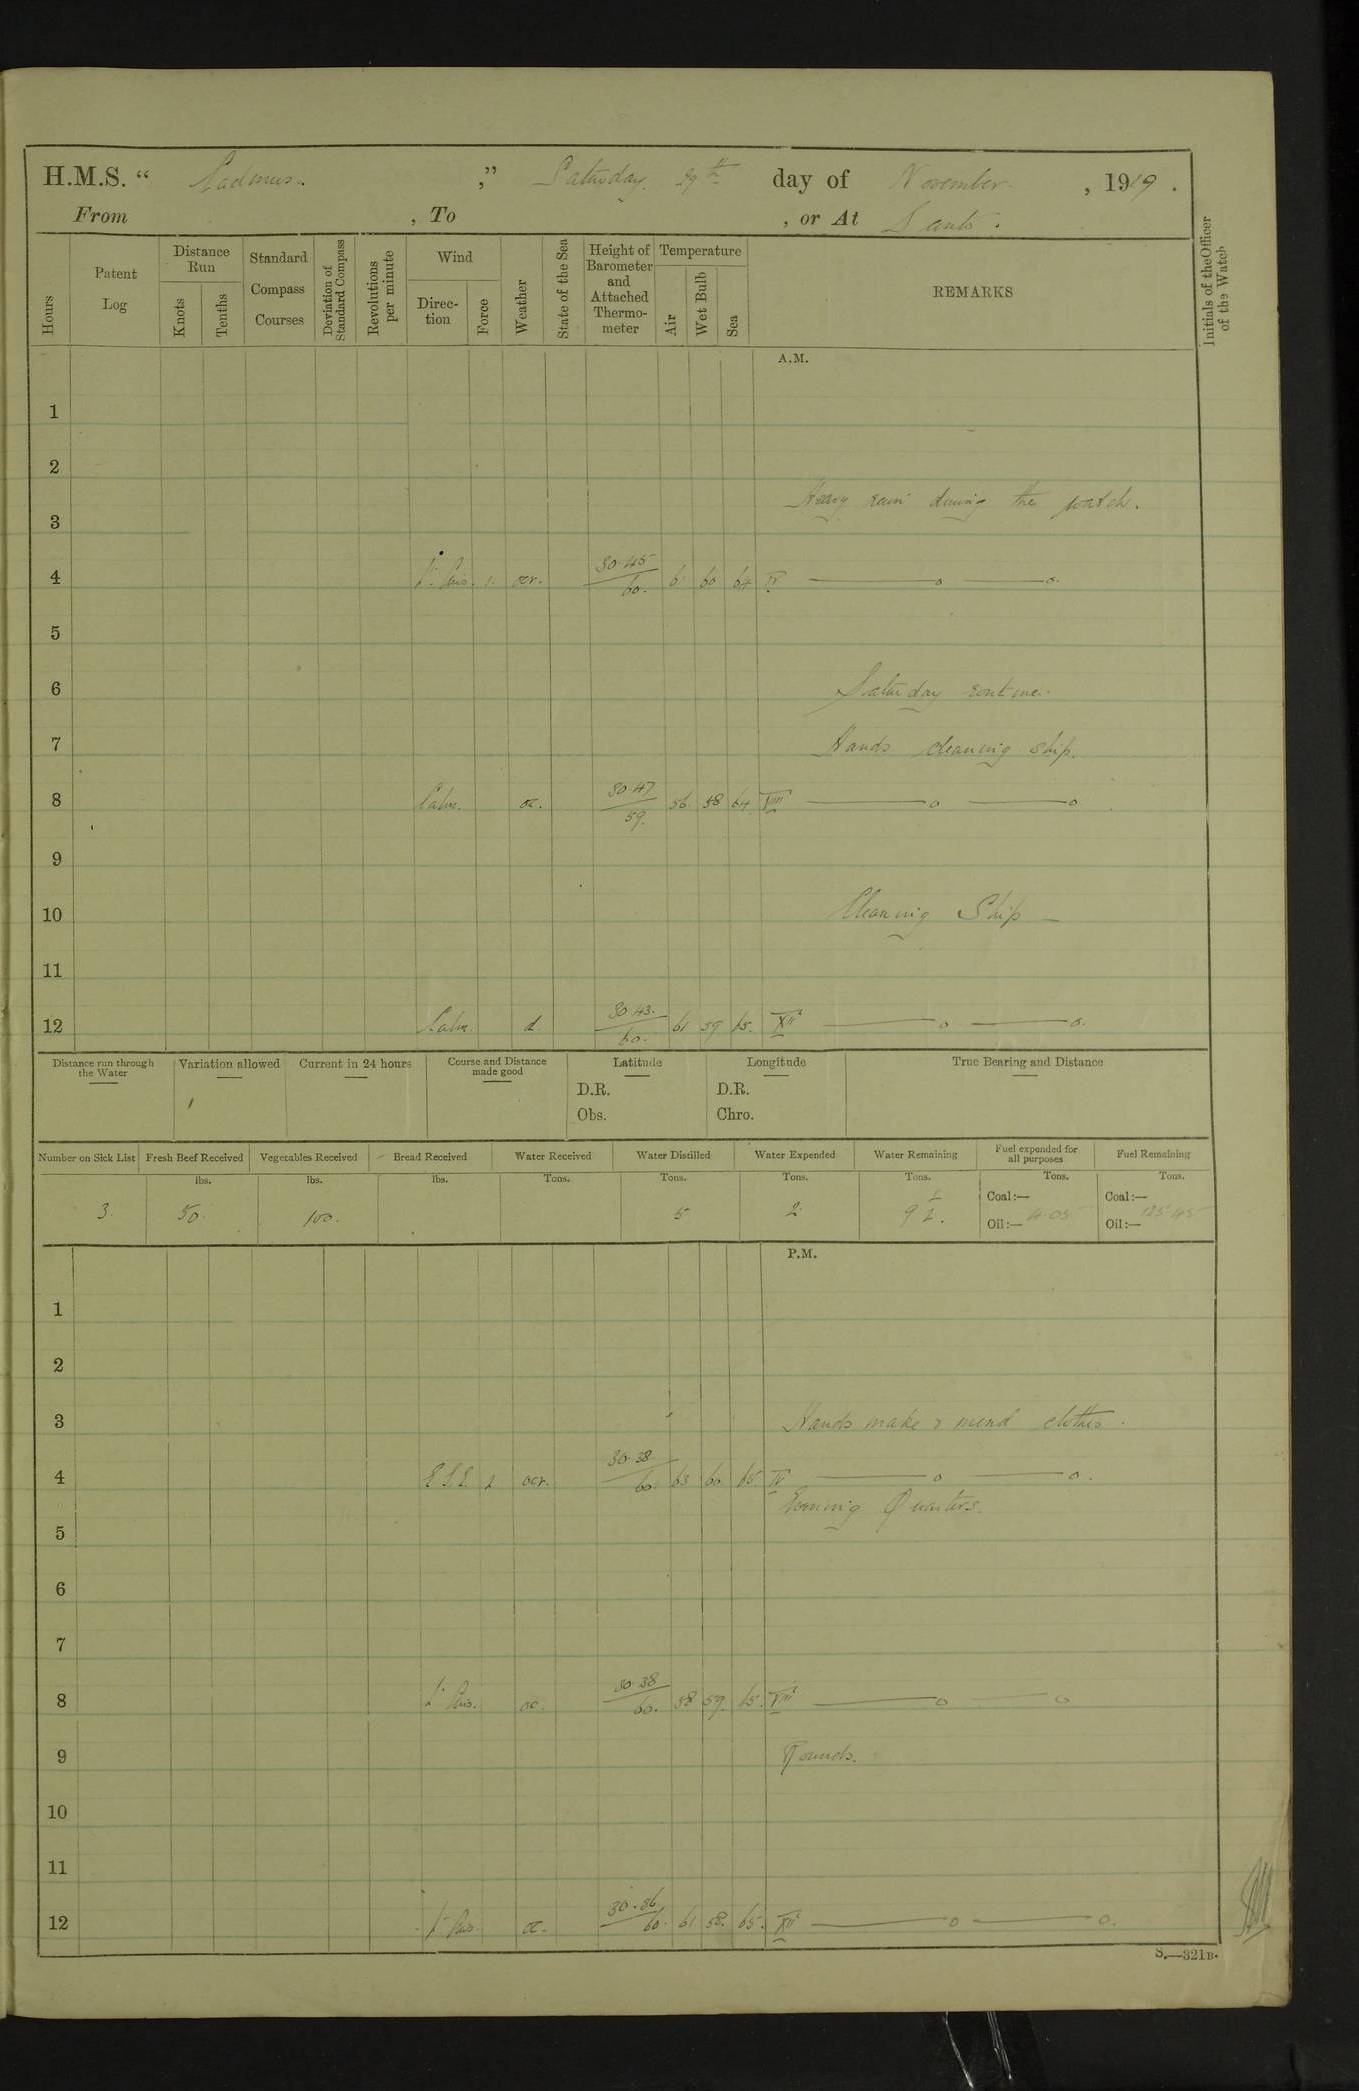 H.M.S. " Cadmus. ," Saturday 29th day of November , 1919 .
From , To , or At
Hours
Patent Log
Distance Run
Knots
Tenths
Standard Compass Courses
Deviation of Standard Compass
Revolutions per minute
Wind
Direction
Force
Weather
State of the Sea
Height of Barometer and Attached Thermometer
Temperature
Air
Wet Bulb
Sea
REMARKS
Initials of the Officer of the Watch
A.M.
1
2
Heavy rain during the watch.
3
4 ocr. 30.45 60. 60 64 IV
5
6 Saturday routine.
7 Hands cleaning ship.
8 Calm. oc. 30.47 59. 56 58 64 VIII
9
10 Cleaning Ship —
11
12 Calm. d. 30.43. 60. 61 59 65. XII
Distance run through the Water
Variation allowed
Current in 24 hours
Course and Distance made good
Latitude
D.R.
Obs.
Longitude
D.R.
Chro.
True Bearing and Distance
Number on Sick List Fresh Beef Received Vegetables Received Bread Received Water Received Water Distilled Water Expended Water Remaining Fuel expended for all purposes Fuel Remaining
lbs. lbs. lbs. Tons. Tons. Tons. Tons. Tons. Tons.
3. 50. 100. 5 2 Coal:— Coal:—
Oil:— 4.05 Oil:— 125.45
P.M.
1
2
3 Hands make & mend clothes.
4 E.S.E. 2 ocr. 30.38 60. 63 60 65. IV
Evening Quarters.
5
6
7
8 oc. 30.38 60. 58 59. 65. VIII
9 Rounds.
10
11
12 oc. 30.36 60. 61 58. 65. XII
S.—321B.